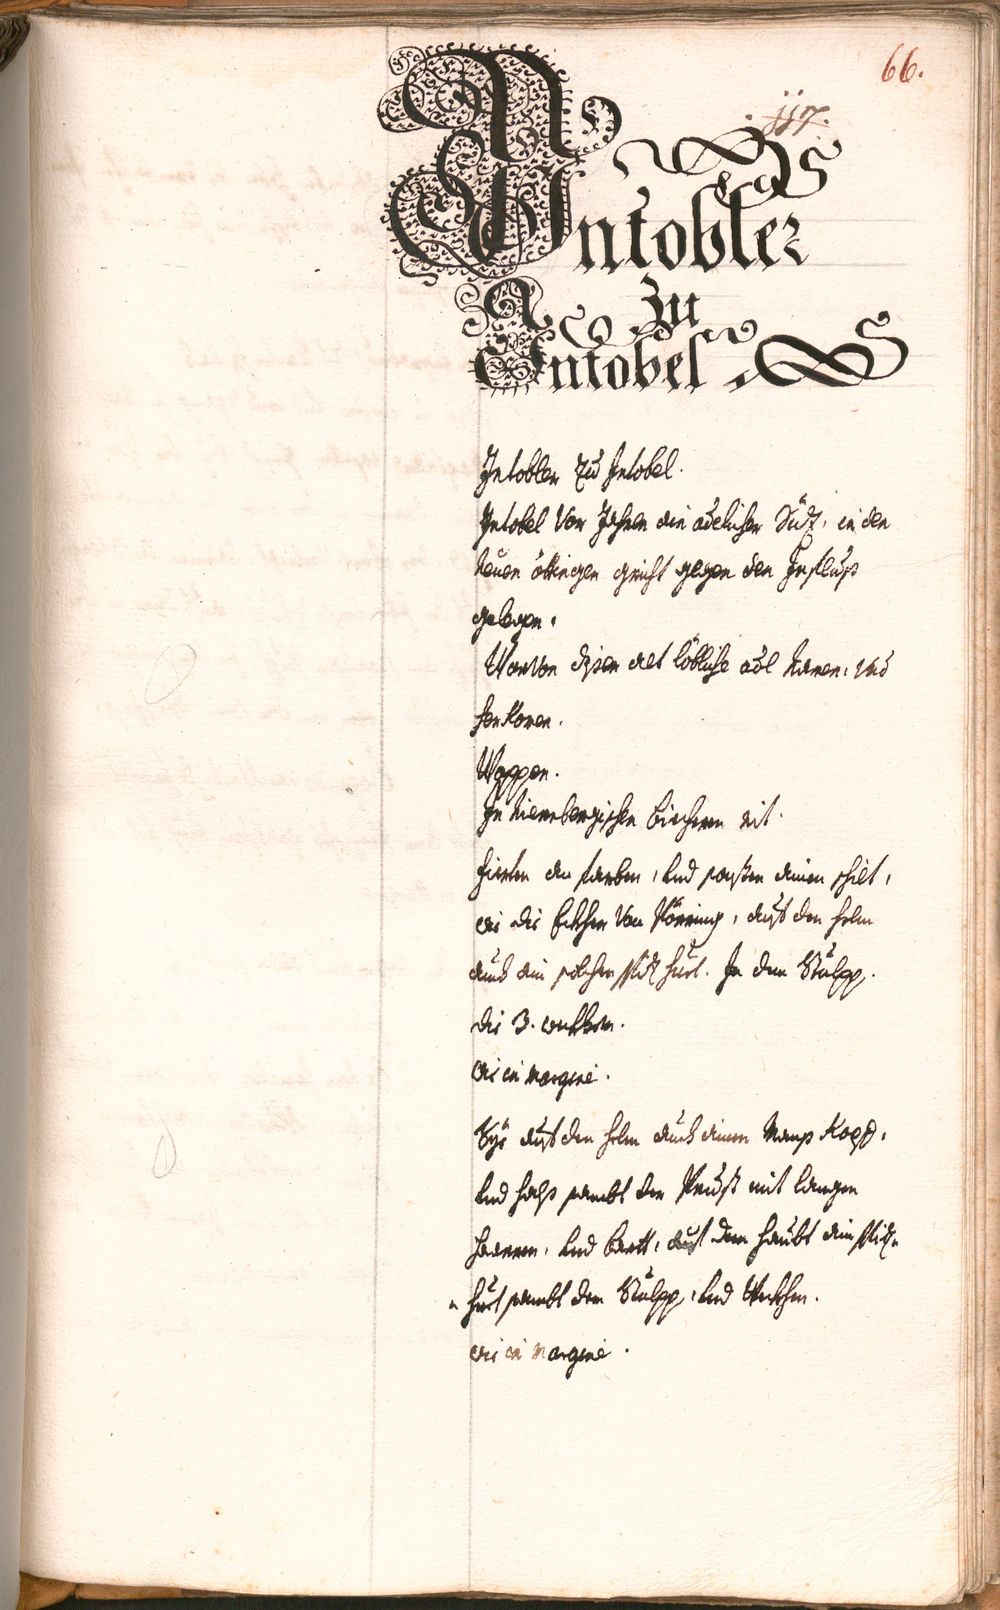 66.
117.
Intobler
zu
Intobel
Intobler zu Intobel.
Intobel Vor Jahren ein adelicher Sütz, in den
neuen öttingen gricht gegen den Influs
gelegen.
Warvon diser alt löbliche adl Namen, und
herkomen.
Wappen.
In Niernbergischen biechern mit
fierten an farben, und
wie die Eckher Von Pörring, auf den helm
auch ein solchen spitz huet. In dem Stulpp
die 3. weckhen.
wie in margine.
auf den helm auch einen Mans Kopf,
und hals sambt der Prust mit langen
haaren, und bartt, auf dem haubt ein spitz-
huet sambt dem Stulpp, und Weckhen.
wie in margine.